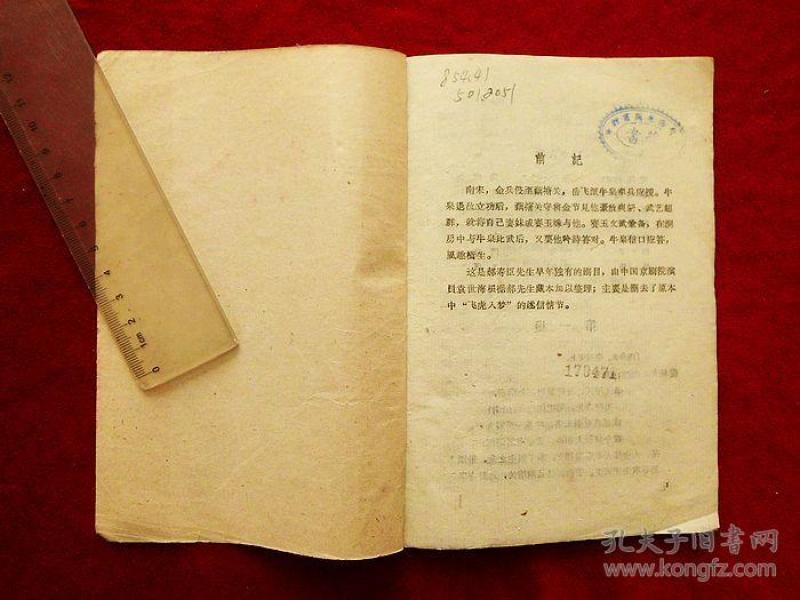 854.41
501.8051
前記
南宋,金兵侵至藕塘关,岳飞派牛皋率兵应援。牛
皋退敌立功后,藕塘关守将金节見他豪放爽朗、武艺超
群,就将自己妻妹戚賽玉姝与他。賽玉文武兼备;在洞
房中与牛皋比武后,又要他吟詩答对。牛皋信口应答,
風趣橫生。
这是郝寿臣先生早年独有的剧目,由中国京剧院演
員袁世海根据郝先生藏本加以整理;主要是删去了原本
中“飞虎入梦”的迷信情节。
17947
1
0 1cm 2 3 4 5
孔夫子旧书网
www.kongfz.com